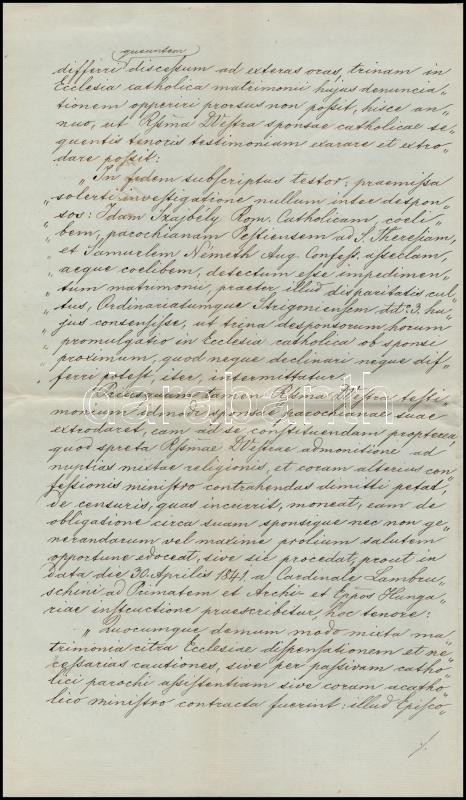 queuntem
differri discessum ad exteras oras, trinam in
Ecclesia catholica matrimonii hujus denuncia„
tionem opperiri prorsus non possit, hisce an„
nuo, ut Rssma DVestra sponsae catholicae se„
quentis tenoris testimonium exarare et extra„
dare possit:
„In fidem subscriptus testor: praemissa
„solerti investigatione nullum inter despon„
„sos: Idam Szajbély Rom. Catholicam, coeli„
„bem, parochianam Pestiensem ad S. Theresiam,
„et Samuelem Németh Aug. Confess. asseclam,
„aeque coelibem, detectum esse impedimen„
„tum matrimonii, praeter illud disparitatis cul„
„tus, Ordinariatumque Strigoniensem ddt 3. hu„
„jus consensisse, ut trina desponsorum horum
„promulgatio in Ecclesia catholica ob sponsi
„proximum, quod neque declinari neque dif„
„ferri potest, iter, intermittatur."
Priusquam tamen Rssma DVestra testi„
monium ad nod sponsae parochianae suae
extradaret, eam ad se constituendam propterea,
quod spreta Rssmae DVestrae admonitione ad
nuptias mixtae religionis, et coram alterius con„
fessionis ministro contrahendas dimitti petat,
de censuris, quas incurrit, moneat, eam de
obligatione circa suam sponsique nec non ge„
nerandarum vel maxime prolium salutem
opportune edoceat, sive sic procedat, prout in
data die 30. Aprilis 1841. a Cardinale Lambru„
schini ad Primatem et Archi- et Eppos Hunga„
riae instructione praescribitur, hoc tenore:
„Quocumque demum modo mixta ma„
trimonia citra Ecclesiae dispensationem et ne„
cessarias cautiones, sive per passivam catho„
lici parochi assistentiam sive coram acatho„
lico ministro contracta fuerint: illud Episco„
./.
darabanth